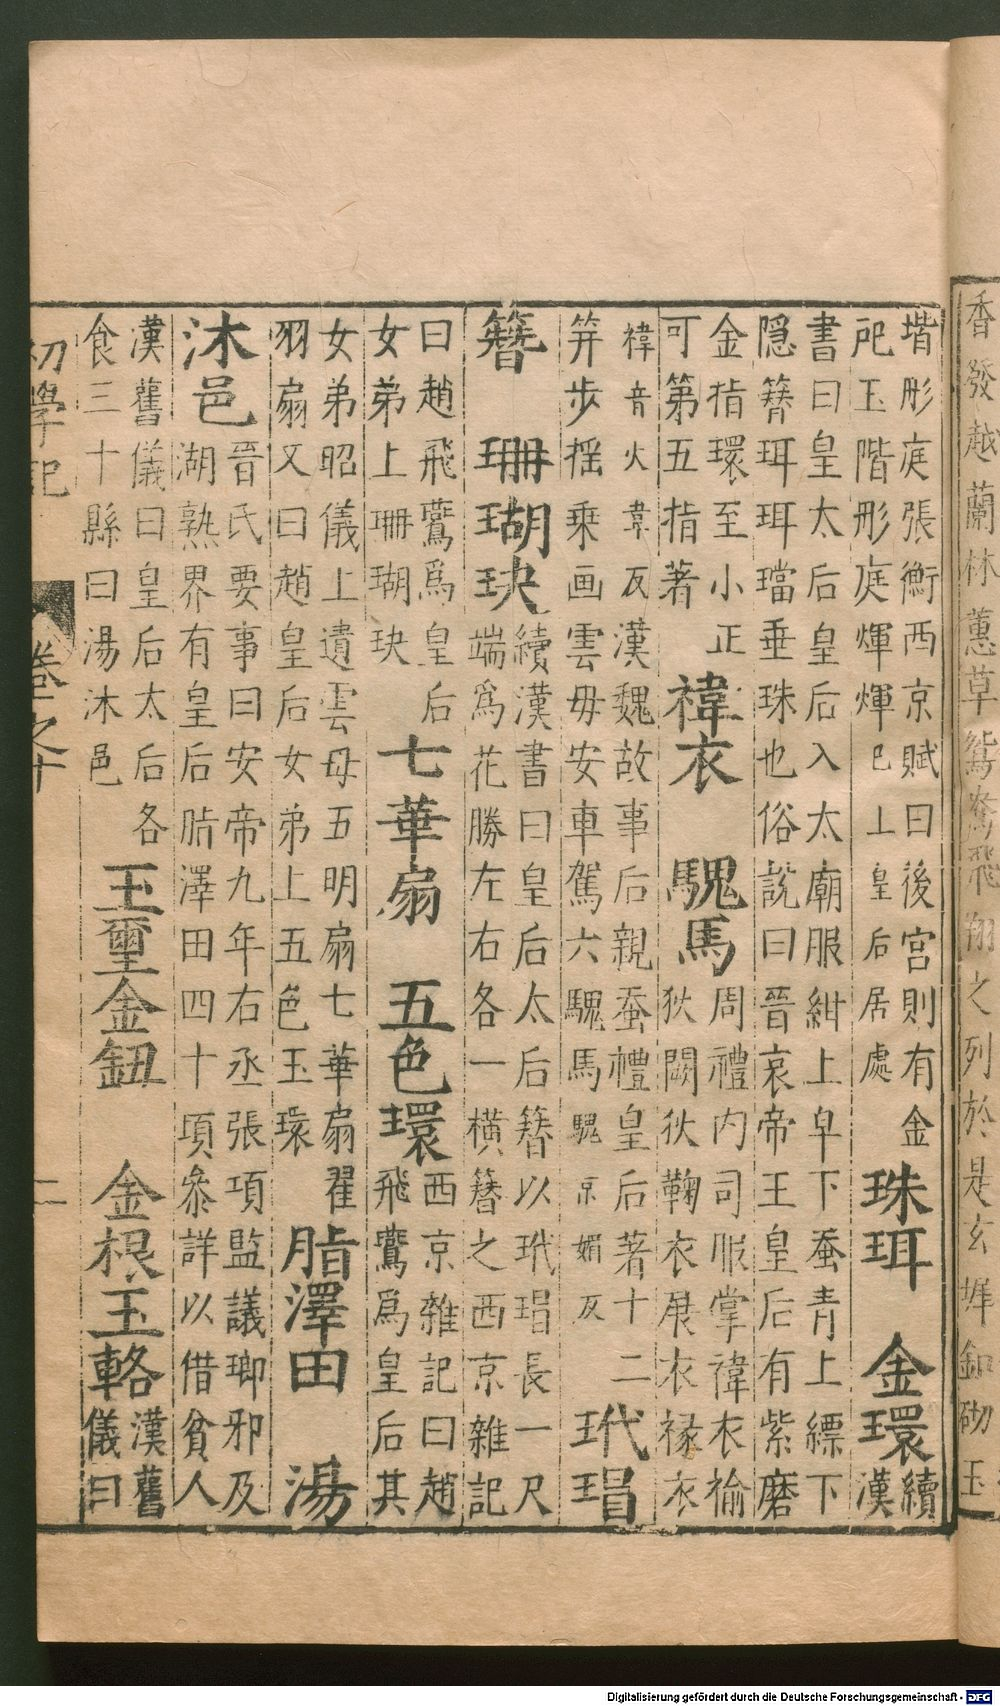 香發越蘭林蕙草鴛鴦飛翔之列於是玄墀釦砌玉
堦彤庭張衡西京賦曰後宮則有金
戺玉階彤庭煇煇巳上皇后居處
珠珥　金環
續
漢
書曰皇太后皇后入太廟服紺上皁下蚕青上縹下
隠簪珥珥璫垂珠也俗說曰晉哀帝王皇后有紫磨
金指環至小正
可第五指著
褘衣　騩馬
周禮内司服掌褘衣褕
狄闕狄鞠衣展衣褖衣
褘音火韋反漢魏故事后親蚕禮皇后著十二
笄步揺乗画雲毋安車駕六騩馬騩京媚反
玳瑁
簪　珊瑚玦
續漢書曰皇后太后簪以玳瑁長一尺
端爲花勝左右各一横簪之西京雜記
曰趙飛鷰爲皇后
女弟上珊瑚玦
七華扇　五色環
西京雜記曰趙
飛鷰爲皇后其
女弟昭儀上遺雲毋五明扇七華扇翟
羽扇又曰趙皇后女弟上五色玉環
脂澤田　湯
沐邑
晉氏要事曰安帝九年右丞張項監議瑯邪及
湖熟界有皇后脂澤田四十項叅詳以借貧人
漢舊儀曰皇后太后各
食三十縣曰湯沐邑
玉璽金鈕　金根玉輅
漢舊
儀曰
初學記　卷之十　二
Digitalisierung gefördert durch die Deutsche Forschungsgemeinschaft - DFG